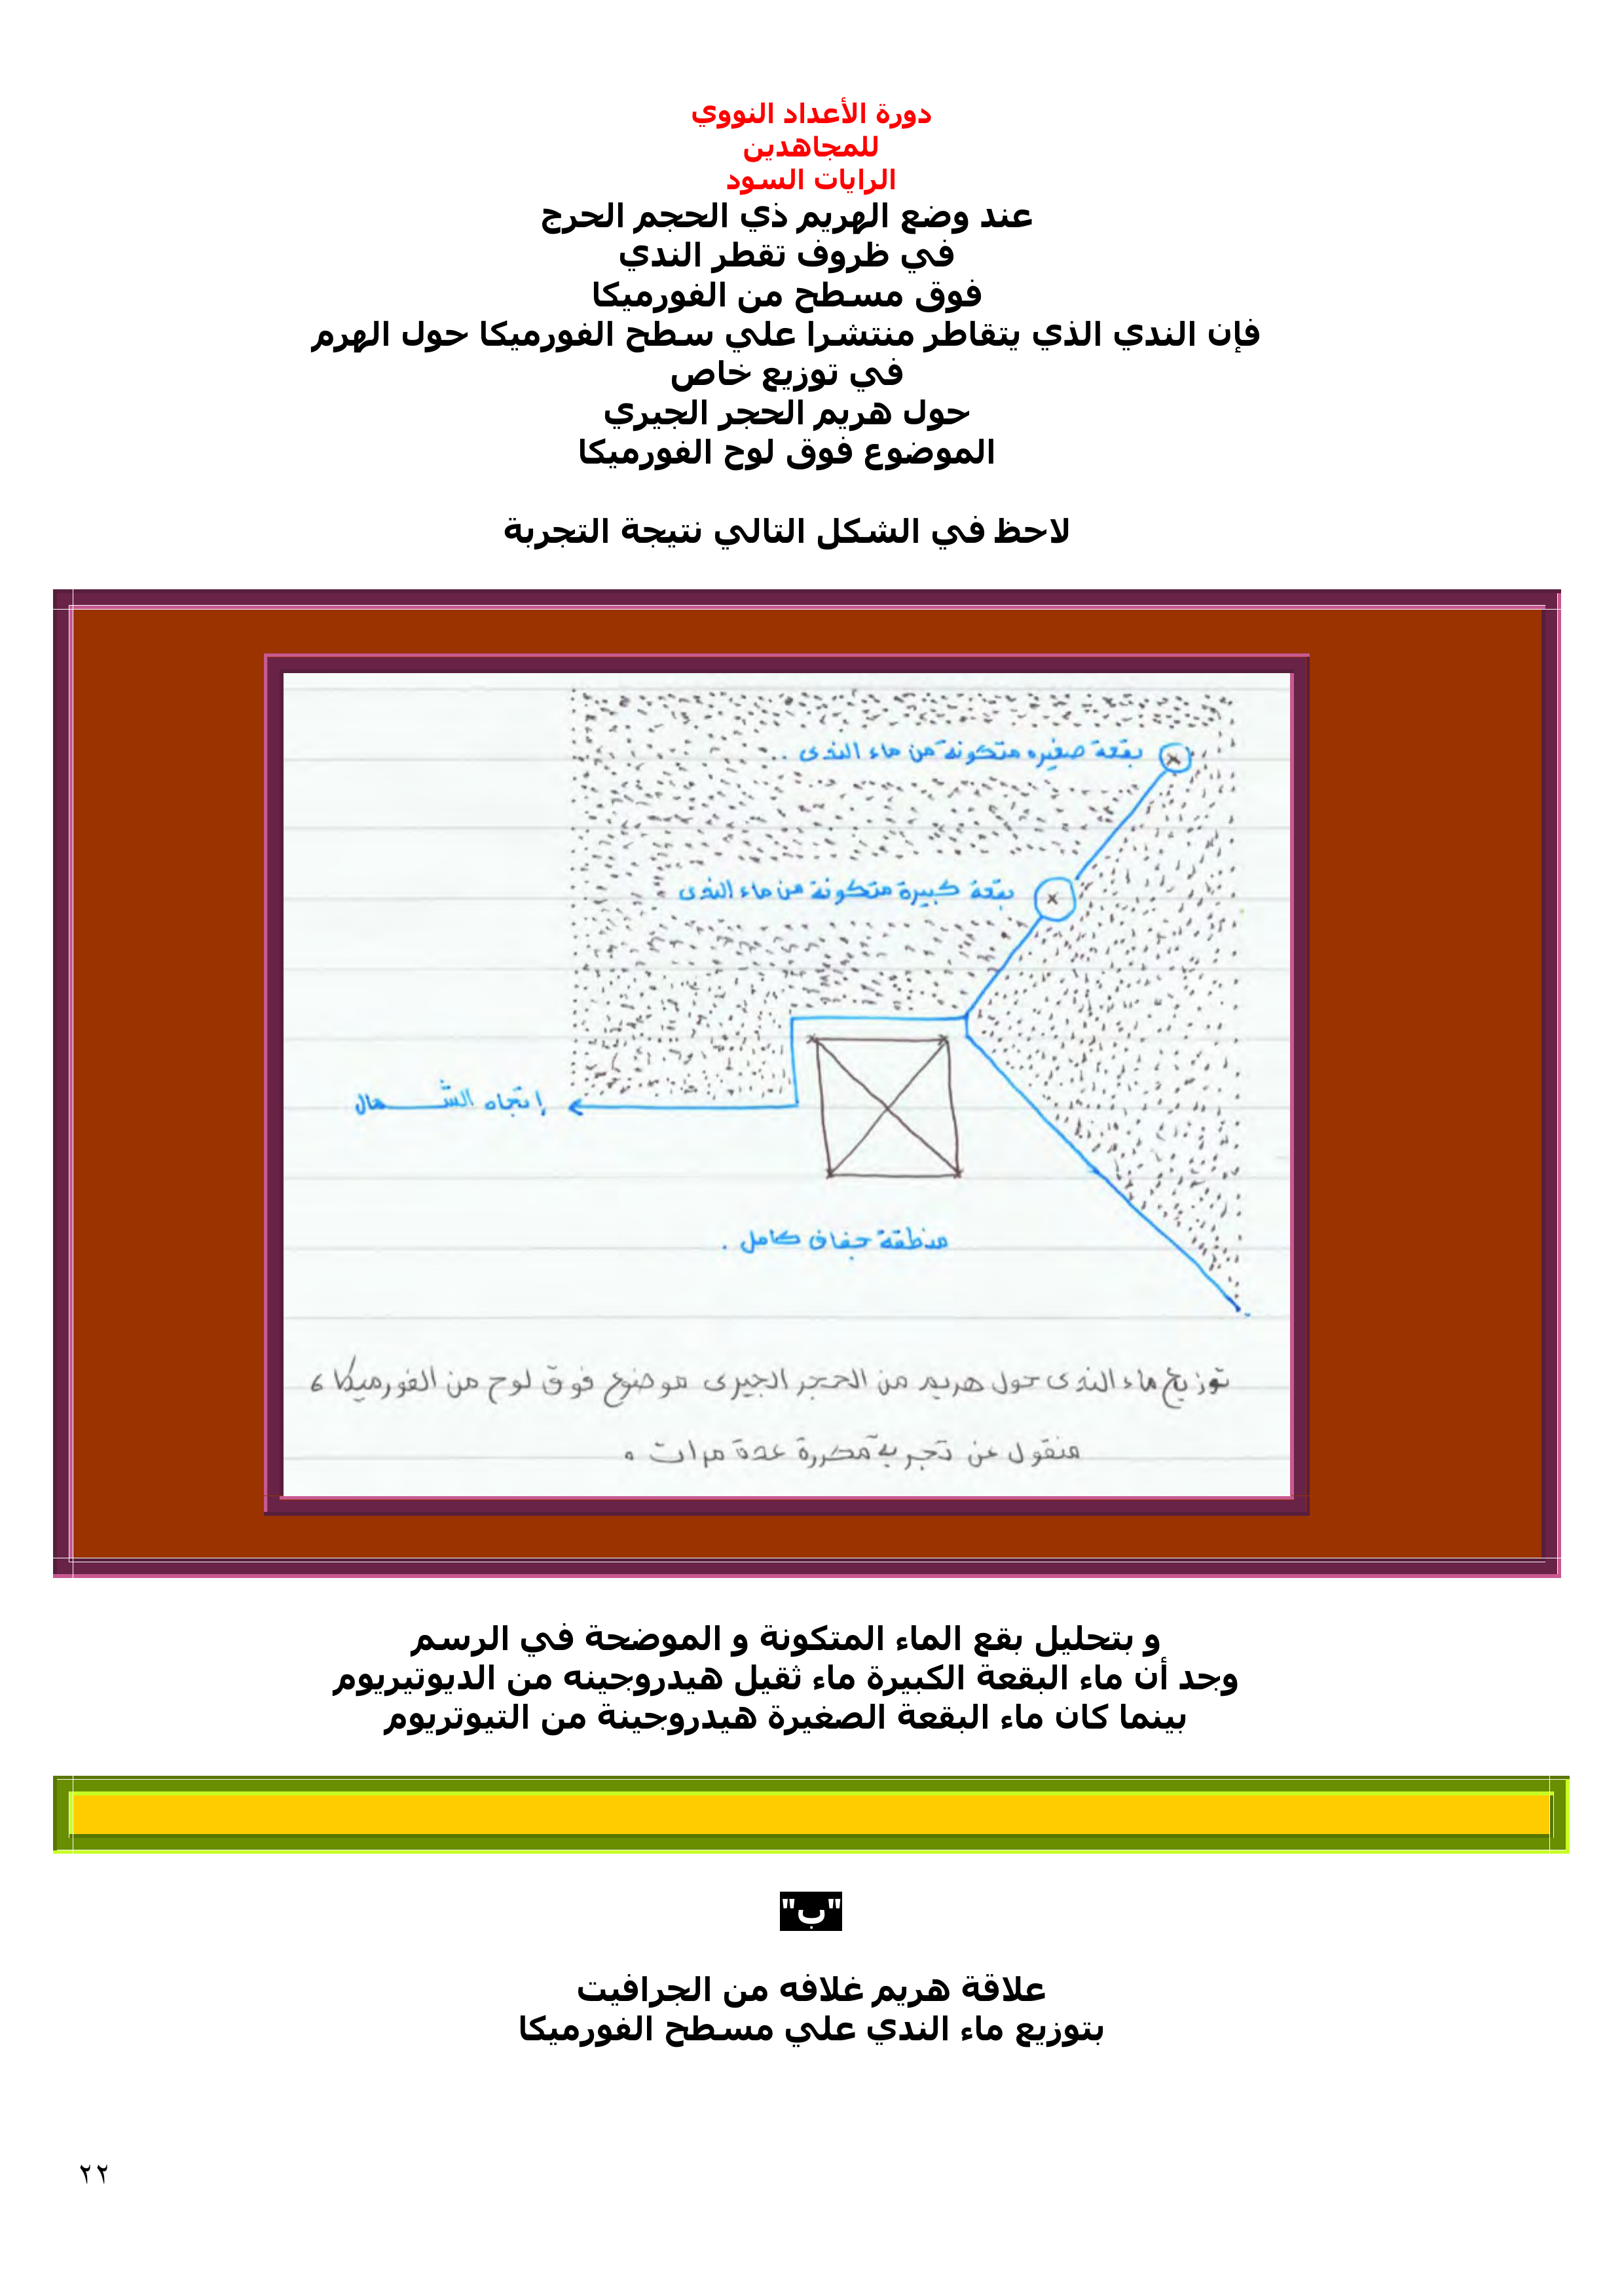 دورة الأعداد النووي
للمجاهدين
الرايات السود
عند وضع الهريم ذي الحجم الحرج
في ظروف تقطر الندي
فوق مسطح من الفورميكا
فإن الندي الذي يتقاطر منتشرا علي سطح الفورميكا حول الهرم
في توزيع خاص
حول هريم الحجر الجيري
الموضوع فوق لوح الفورميكا
لاحظ في الشكل التالي نتيجة التجربة
بقعة صغيره متكونة من ماء الندى ..
بقعة كبيرة متكونة من ماء الندى
إتجاه الشـــمال
منطقة جفاف كامل .
توزيع ماء الندى حول هريم من الحجر الجيرى موضوع فوق لوح من الفورميكا ،
منقول عن تجربة مكررة عدة مرات .
و بتحليل بقع الماء المتكونة و الموضحة في الرسم
وجد أن ماء البقعة الكبيرة ماء ثقيل هيدروجينه من الديوتيريوم
بينما كان ماء البقعة الصغيرة هيدروجينة من التيوتريوم
"ب"
علاقة هريم غلافه من الجرافيت
بتوزيع ماء الندي علي مسطح الفورميكا
٢٢